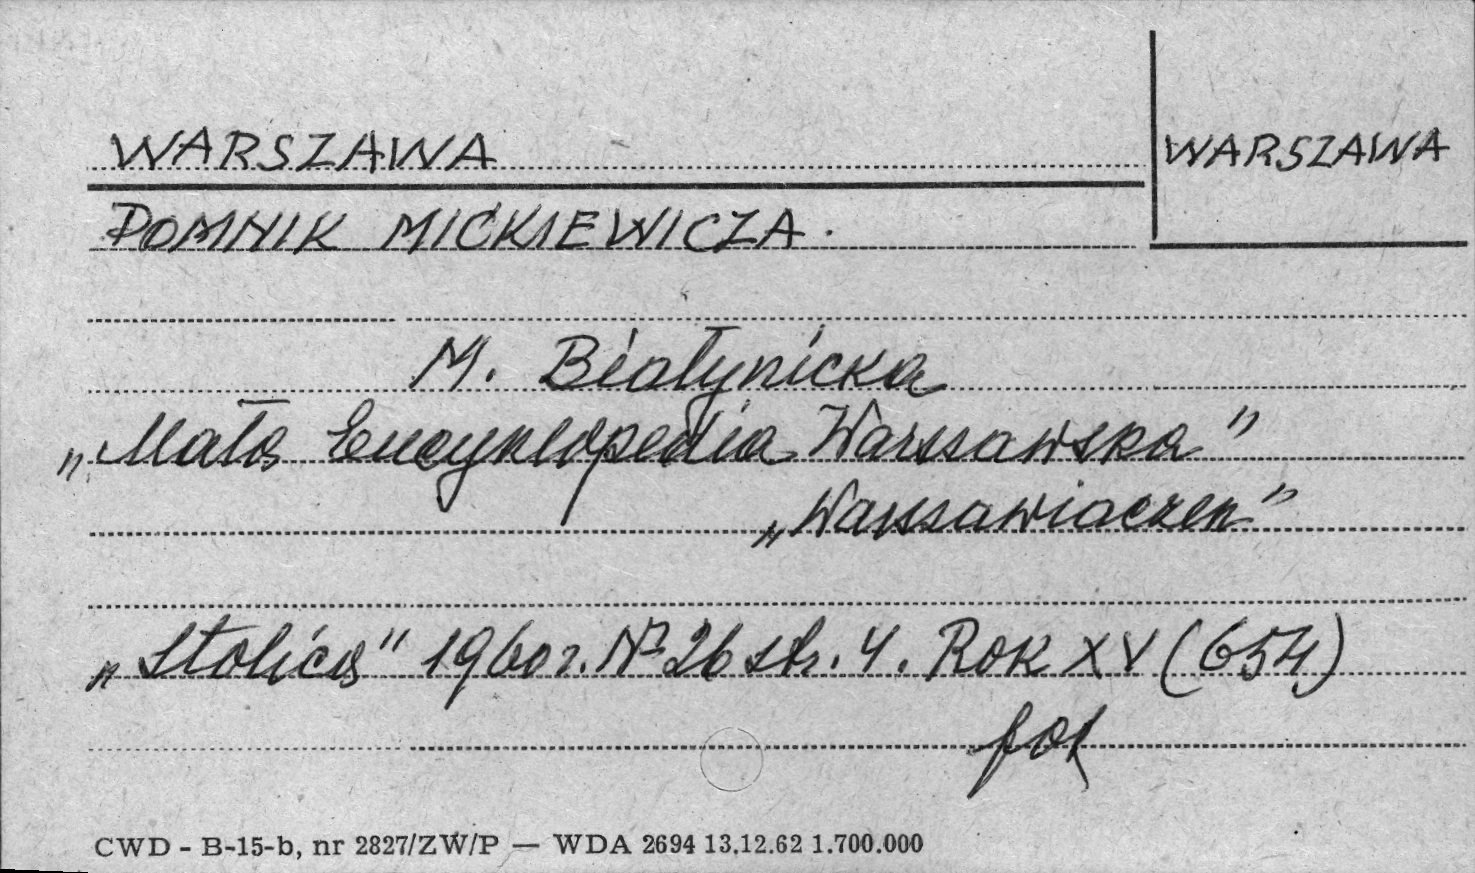 WARSZAWA
WARSZAWA
POMNIK MICKIEWICZA.
M. Białynicka
„Mała Encyklopedia Warszawska"
„Warszawiaczek"
„Stolica" 1960 r. Nº 26 str. 4. Rok XV (654)
fot
CWD - B-15-b, nr 2827/ZW/P — WDA 2694 13.12.62 1.700.000